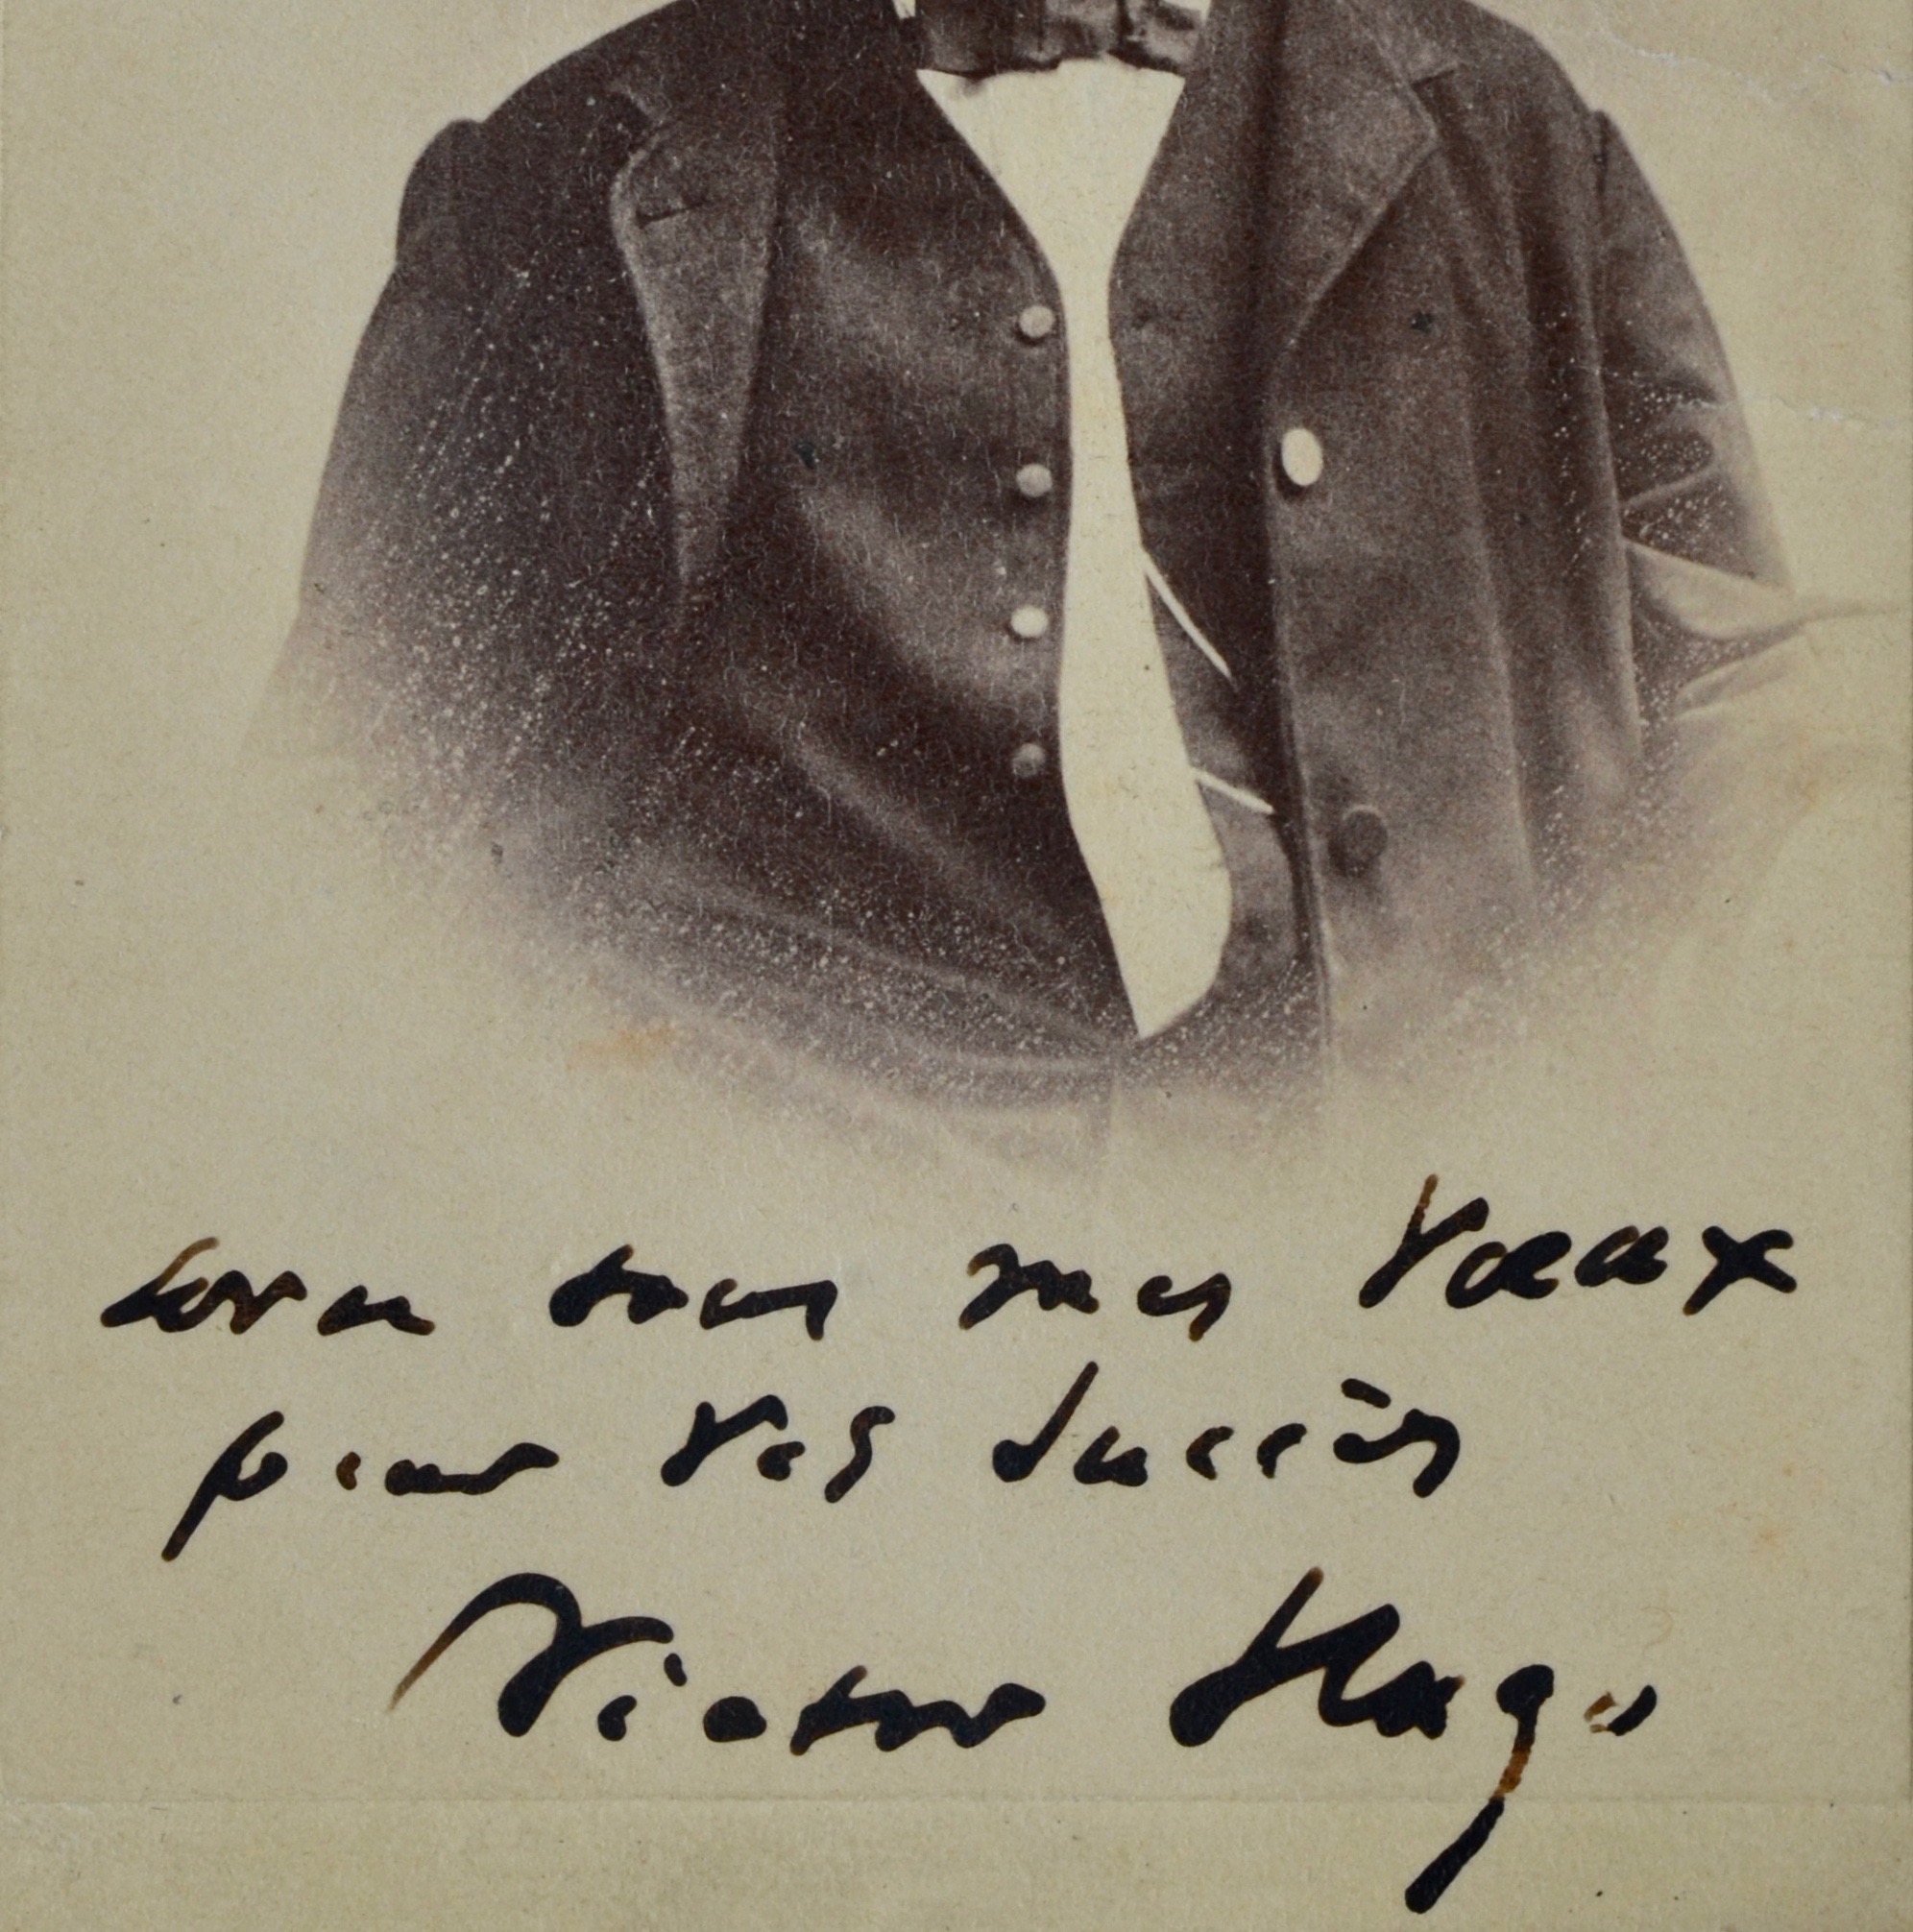 tous mes vœux
pour vos succès
Victor Hugo